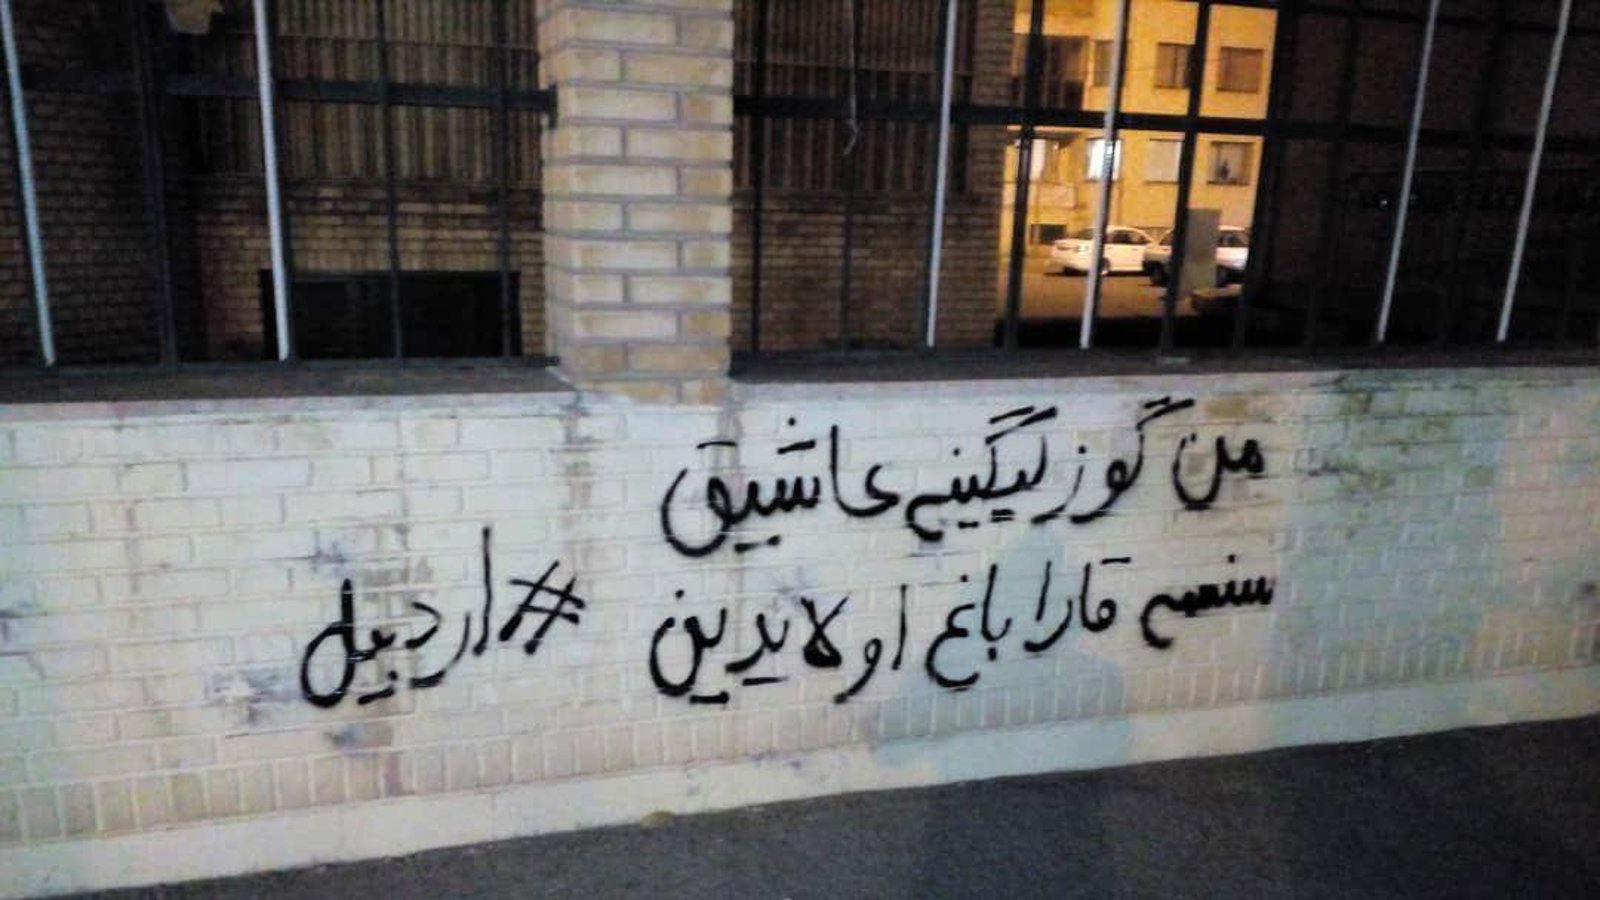 من گوزلیگینه عاشیق
سنسه قاراباغ اولایدین #اردبیل